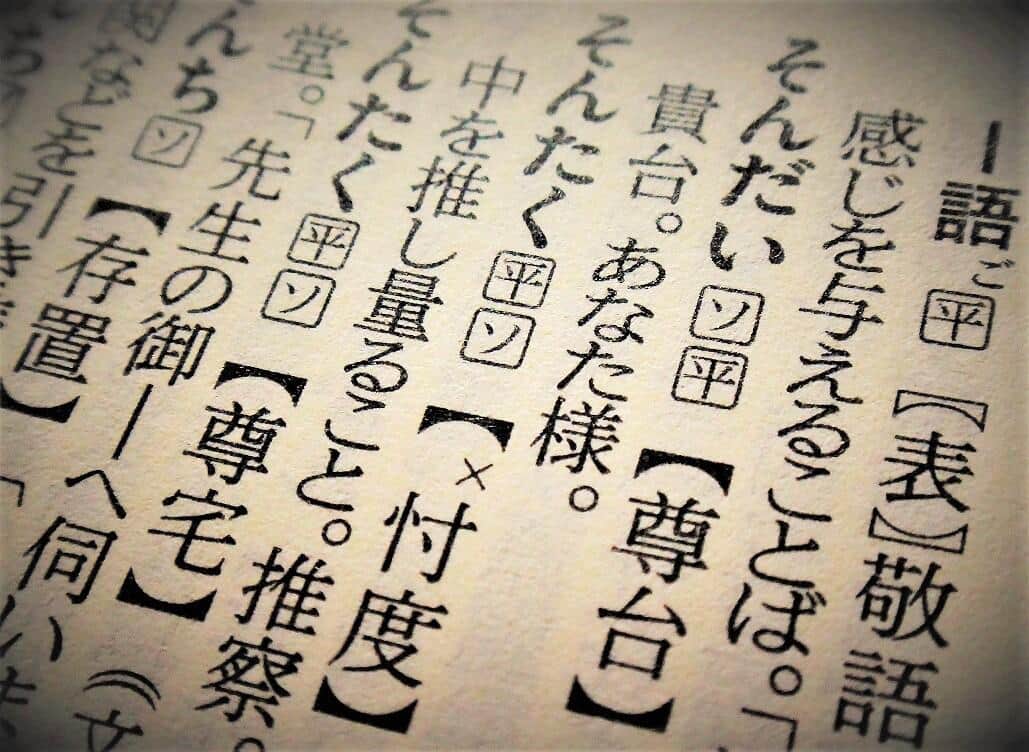 ―語ご 平 〖表〗敬語
感じを与えることば。「
そんだい ソ 平 【尊台】
貴台。あなた様。
そんたく 平 ソ 【×忖度】
中を推し量ること。推察。
そんたく 平 ソ 【尊宅】
堂。「先生の御―へ伺い
んち ソ 【存置】
などを引き